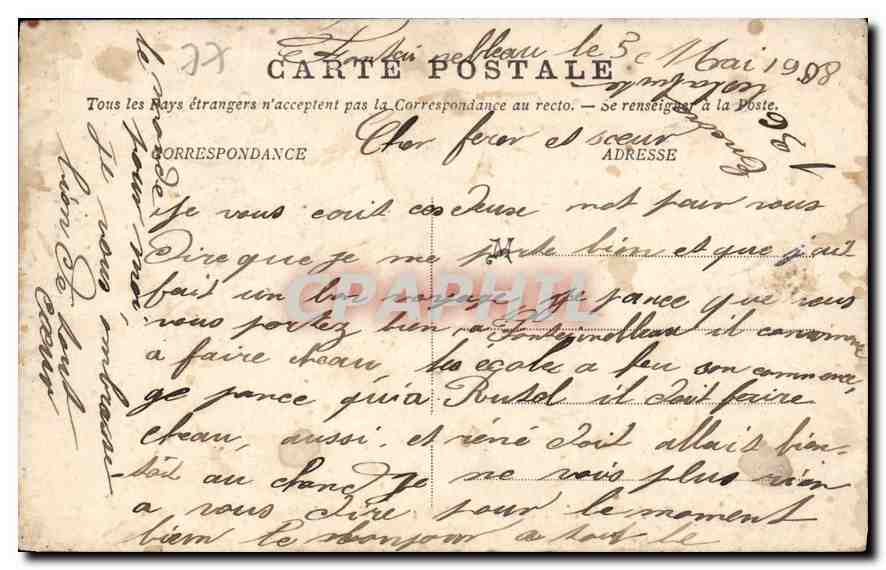 77
Fontainebleau le 3 Mai 1908
CARTE POSTALE
Tous les Pays étrangers n'acceptent pas la Correspondance au recto. — Se renseigner à la Poste.
Cher ferer et sœur
CORRESPONDANCE
ADRESSE
Je vous ecrit ces deuse mot pour vous
dire que je me porte bien et que j'ait
M
fait un bon voyage, je pance que vous
vous portez bien a Fontainebleau il commance
à faire cheau, les ecole a feu son commancé,
ge pance qu'a il doit faire
cheau, aussi, et réné doit allait bien-
tôt au chand je ne vois plus rien
a vous dire pour le moment
bien le bonjour a tout le
le monde
pour moi
je vous ombrasse
bien de tout
cœur
CPAPHIL